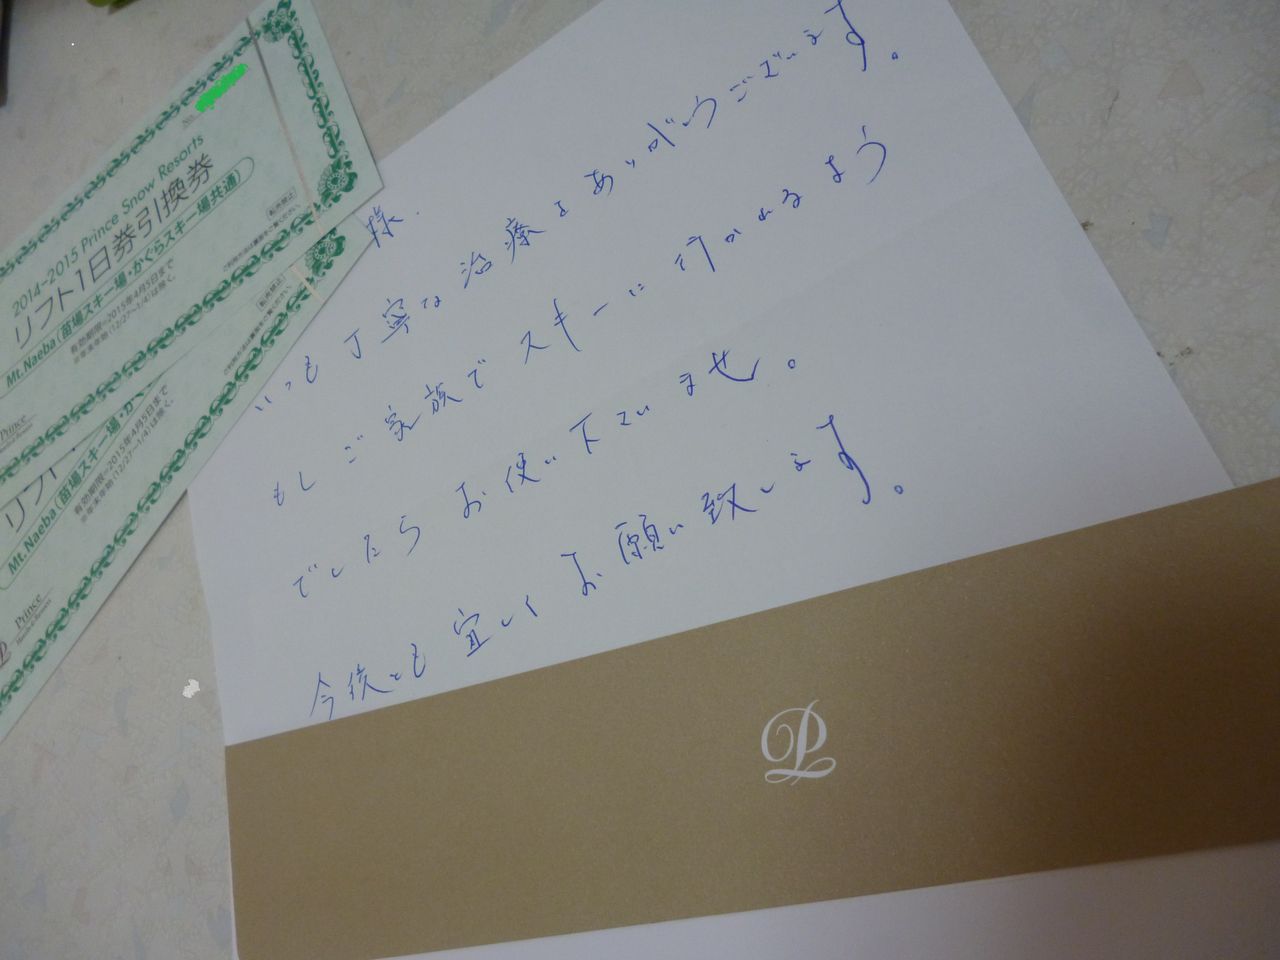 No.
2014-2015 Prince Snow Resorts
リフト1日券引換券
Mt.Naeba(苗場スキー場・かぐらスキー場共通)
有効期限~2015年4月5日まで
※年末年始(12/27~1/4)は除く。
転売禁止
ご利用方法は裏面をご覧ください。
Prince
リフト
Mt.Naeba(苗場スキー場・か
有効期限~2015年4月5日まで
※年末年始(12/27~1/4)は除く。
転売禁止
Prince
様.
いつも丁寧な治療をありがとうございます。
もしご家族でスキーに行かれるよう
でしたらお使い下さいませ。
今後とも宜しくお願い致します。
P